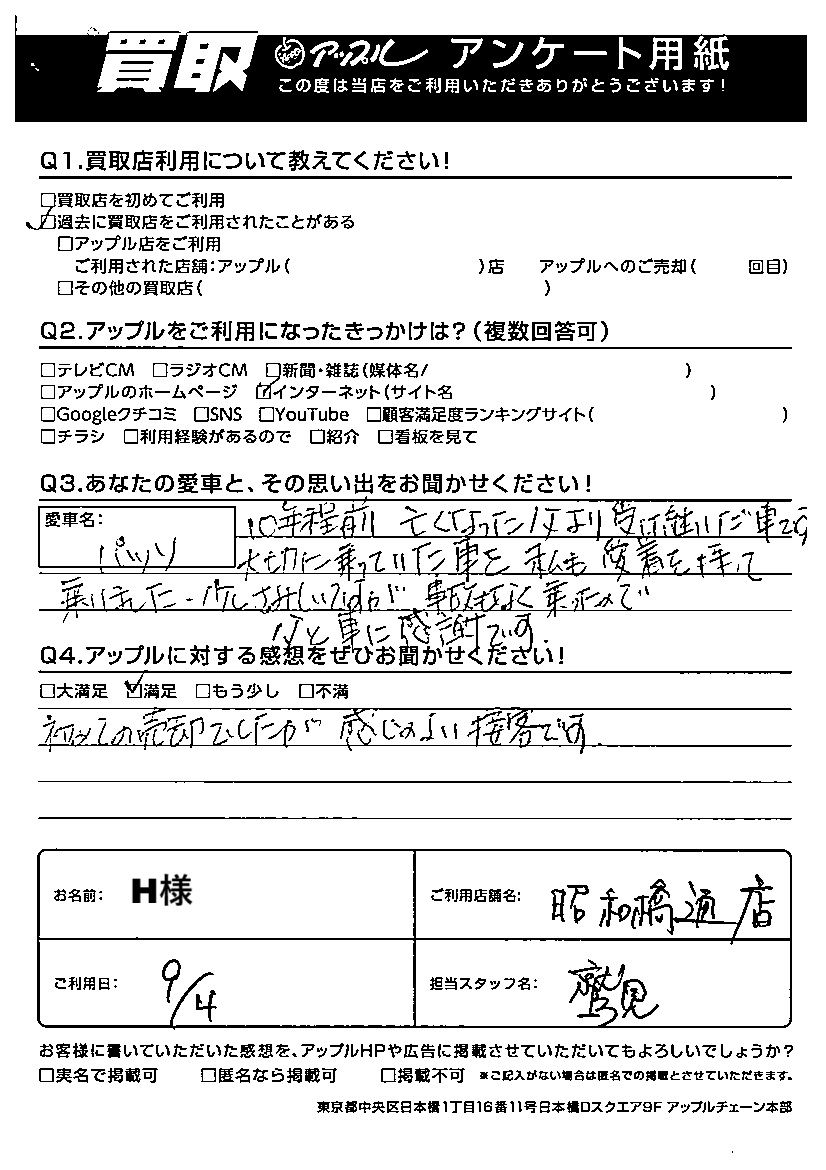 買取 アップル アンケート用紙
この度は当店をご利用いただきありがとうございます!
Q1.買取店利用について教えてください!
□買取店を初めてご利用
☑過去に買取店をご利用されたことがある
□アップル店をご利用
ご利用された店舗:アップル( )店 アップルへのご売却( 回目)
□その他の買取店( )
Q2.アップルをご利用になったきっかけは?(複数回答可)
□テレビCM □ラジオCM □新聞・雑誌(媒体名/ )
□アップルのホームページ ☑インターネット(サイト名 )
□Googleクチコミ □SNS □YouTube □顧客満足度ランキングサイト( )
□チラシ □利用経験があるので □紹介 □看板を見て
Q3.あなたの愛車と、その思い出をお聞かせください!
愛車名:
パッソ
10年程前 亡くなった父より受け継いだ車です
大切に乗っていた車を私も愛着を持って
乗りました.少しさみしいですが 事故もなく乗ったので
父と車に感謝です.
Q4.アップルに対する感想をぜひお聞かせください!
□大満足 ☑満足 □もう少し □不満
初めての売却でしたが 感じのよい接客です.
お名前: H様 ご利用店舗名: 昭和橋通店
ご利用日: 9/4 担当スタッフ名: 鷲見
お客様に書いていただいた感想を、アップルHPや広告に掲載させていただいてもよろしいでしょうか?
□実名で掲載可 □匿名なら掲載可 □掲載不可 ※ご記入がない場合は匿名での掲載とさせていただきます。
東京都中央区日本橋1丁目16番11号日本橋Dスクエア9F アップルチェーン本部